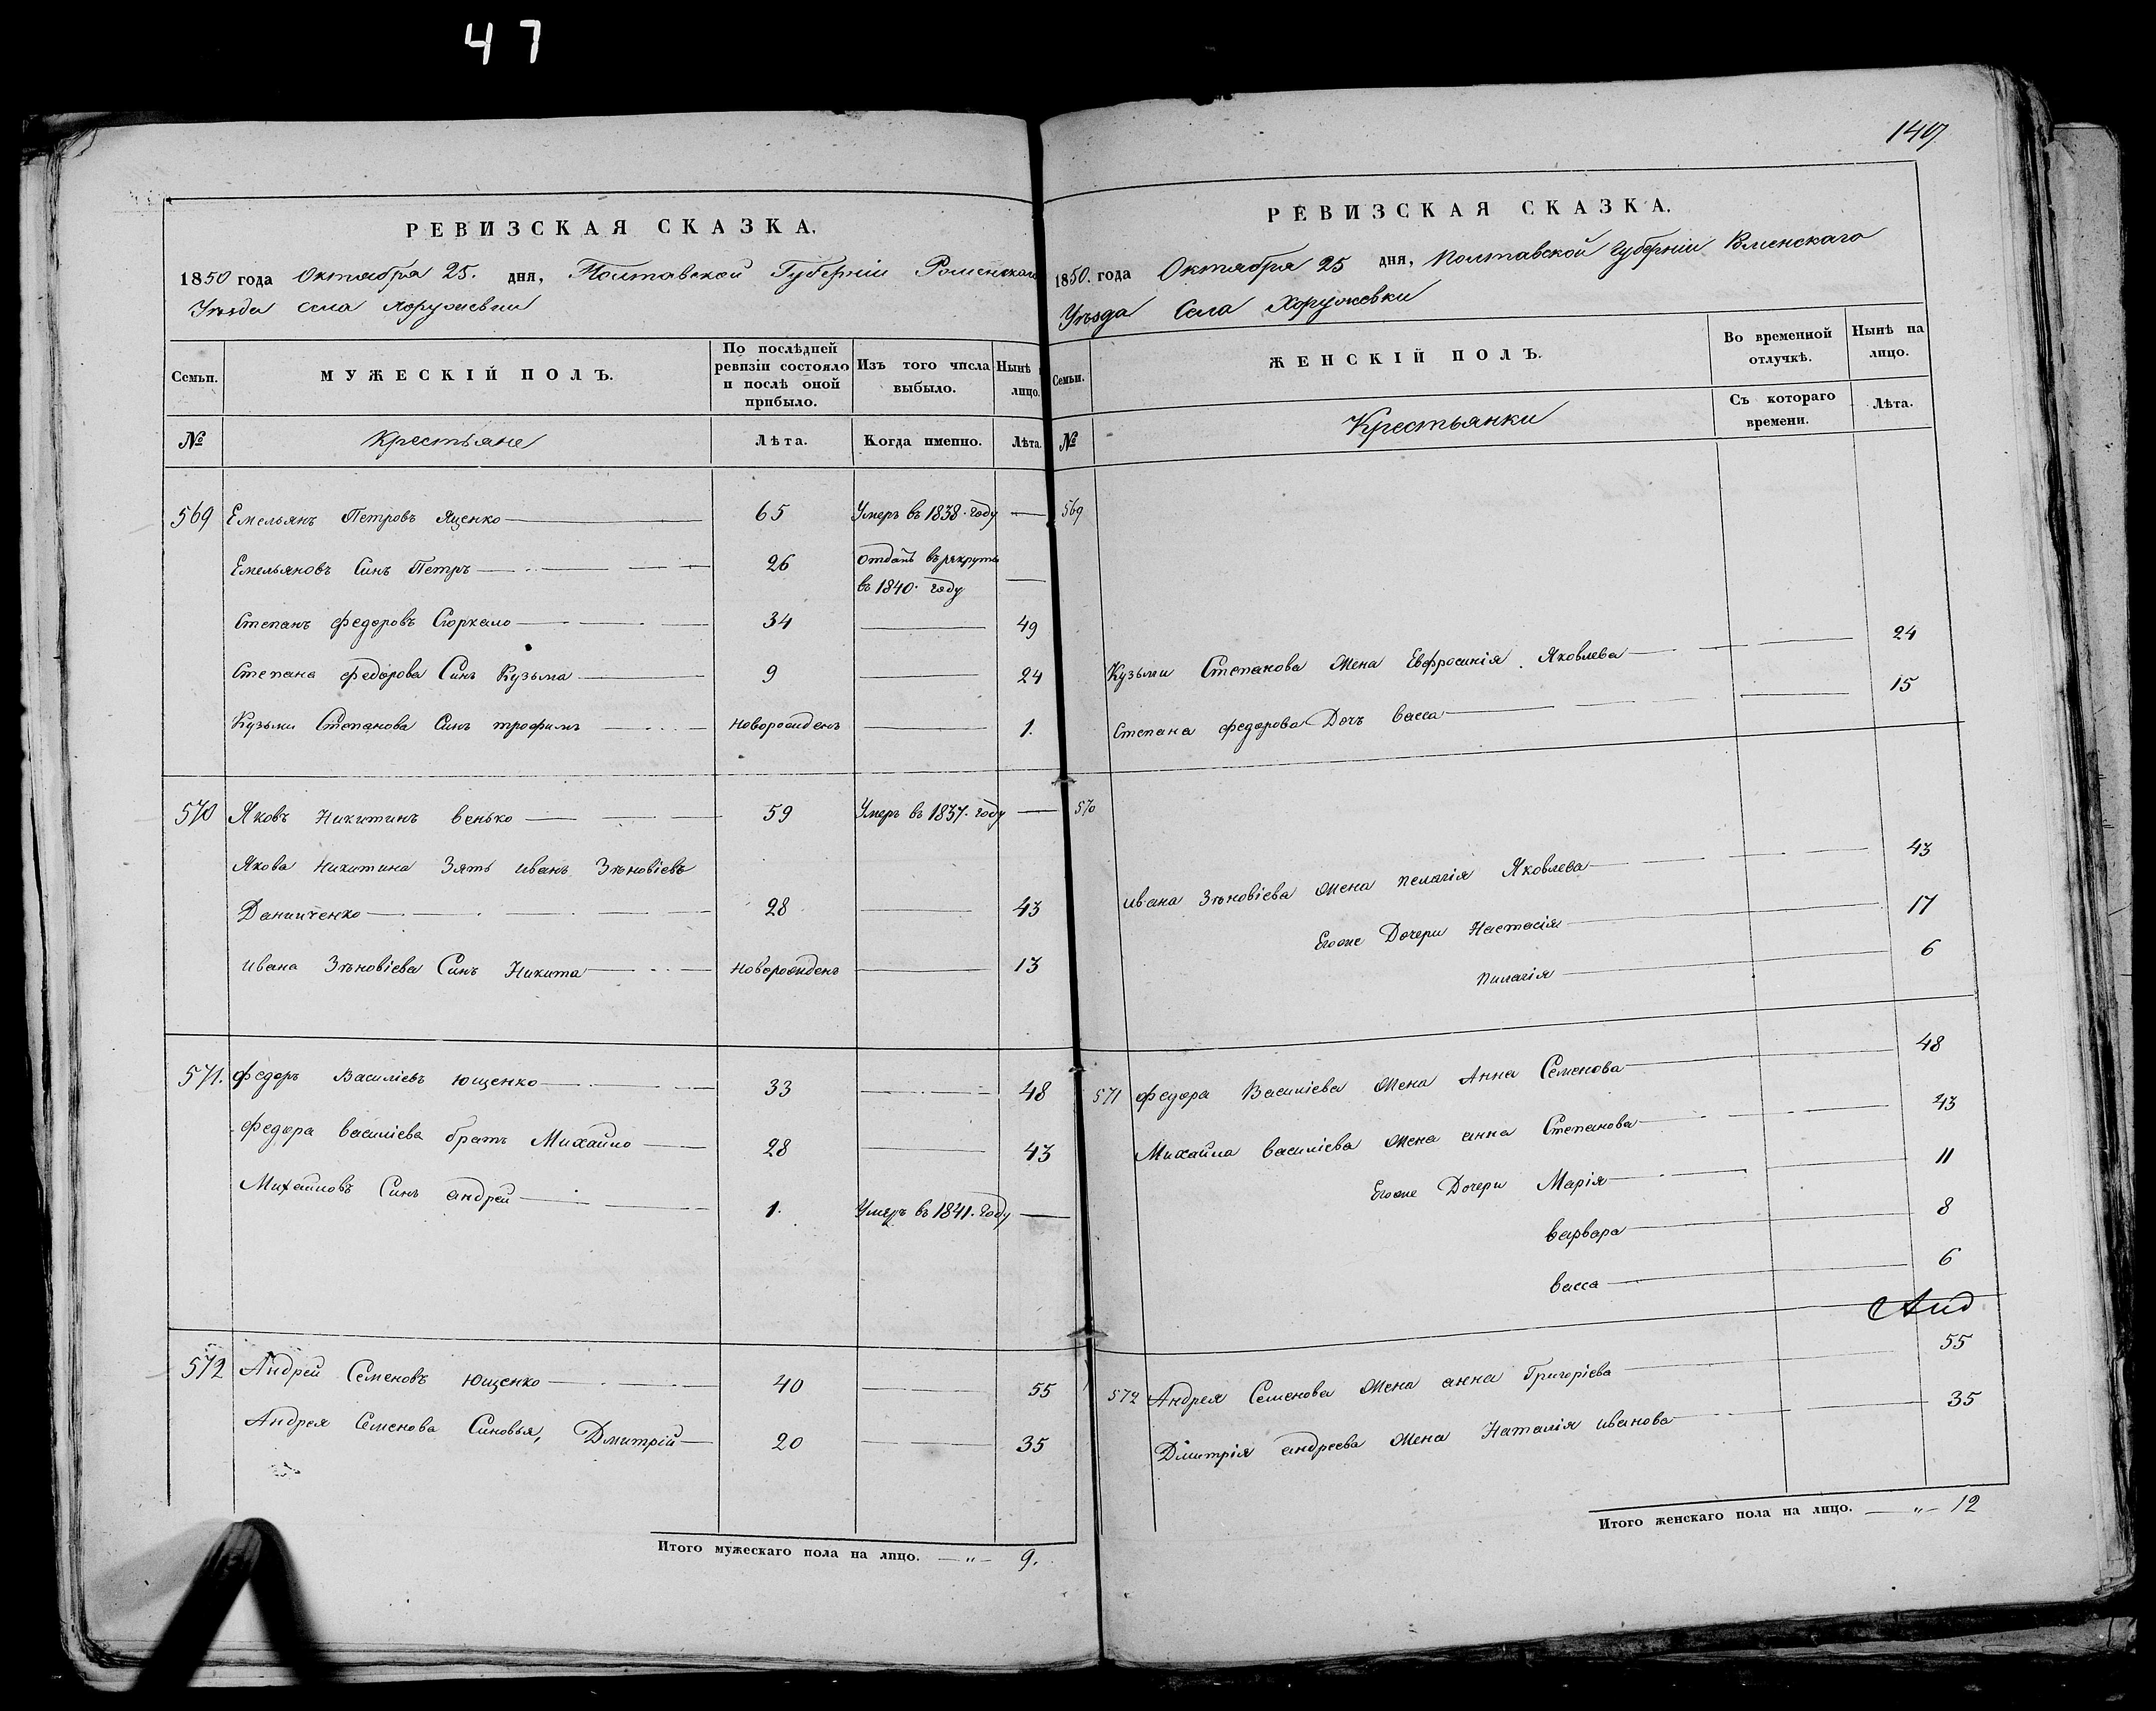 47
РЕВИЗСКАЯ СКАЗКА.
1850 года Октября 25. дня, Полтавской Губернiи Роменскаго
Уѣзда Села Хоружевки
Семьи.
МУЖЕСКIЙ ПОЛЪ.
По послѣдней ревизiи состояло и послѣ оной прибыло.
Изъ того числа выбыло.
Нынѣ лицо.
№ Крестьяне Лѣта. Когда именно. Лѣта.
569 Емельянъ Петровъ Яценко 65 Умеръ въ 1838. году —
Емельяновъ Синъ Петръ 26 отданъ въ рекруты
въ 1840. году —
Степанъ Федоровъ 34 — 49
Степана Федорова Синъ Кузьма 9 — 24
Кузьми Степанова Синъ трофимъ новорожденъ — 1.
570 Яковъ Никитинъ венько 59 Умеръ въ 1837. году —
Якова Никитина Зять иванъ Зѣновiевъ
Данииченко 28 — 43
ивана Зѣновiева Синъ Никита новорожденъ — 13
571. Федоръ Василiевъ Ющенко 33 — 48
Федора василiева братъ Михайло 28 — 43
Михайловъ Синъ андрей 1. Умеръ въ 1841. году —
572 Андрей Семеновъ Ющенко 40 — 55
Андрея Семенова Синовья, Дмитрiй 20 — 35
Итого мужескаго пола на лицо. — „ — 9.
РЕВИЗСКАЯ СКАЗКА.
1850. года Октября 25 дня, Полтавской Губернiи Роменскаго
Уѣзда Села Хоружевки
Семьи.
ЖЕНСКIЙ ПОЛЪ.
Во временной отлучкѣ.
Нынѣ на лицо.
№ Крестьянки Съ котораго времени. Лѣта.
569
Кузьми Степанова Жена Евфросинiя Яковлева — 24
Степана Федорова Дочъ васса — 15
570
ивана Зѣновiева Жена пелагiя Яковлева — 43
Егоже Дочери Настасiя — 17
пилагiя — 6
571 Федора Василiева Жена Анна Семенова — 48
Михайла василiева Жена анна Степанова — 43
Егоже Дочери Марiя — 11
варвара — 8
васса — 6
572 Андрея Семенова Жена анна Григорiева — 55
Дмитрiя андреева Жена Наталiя иванова — 35
Итого женскаго пола на лицо. — „ — 12